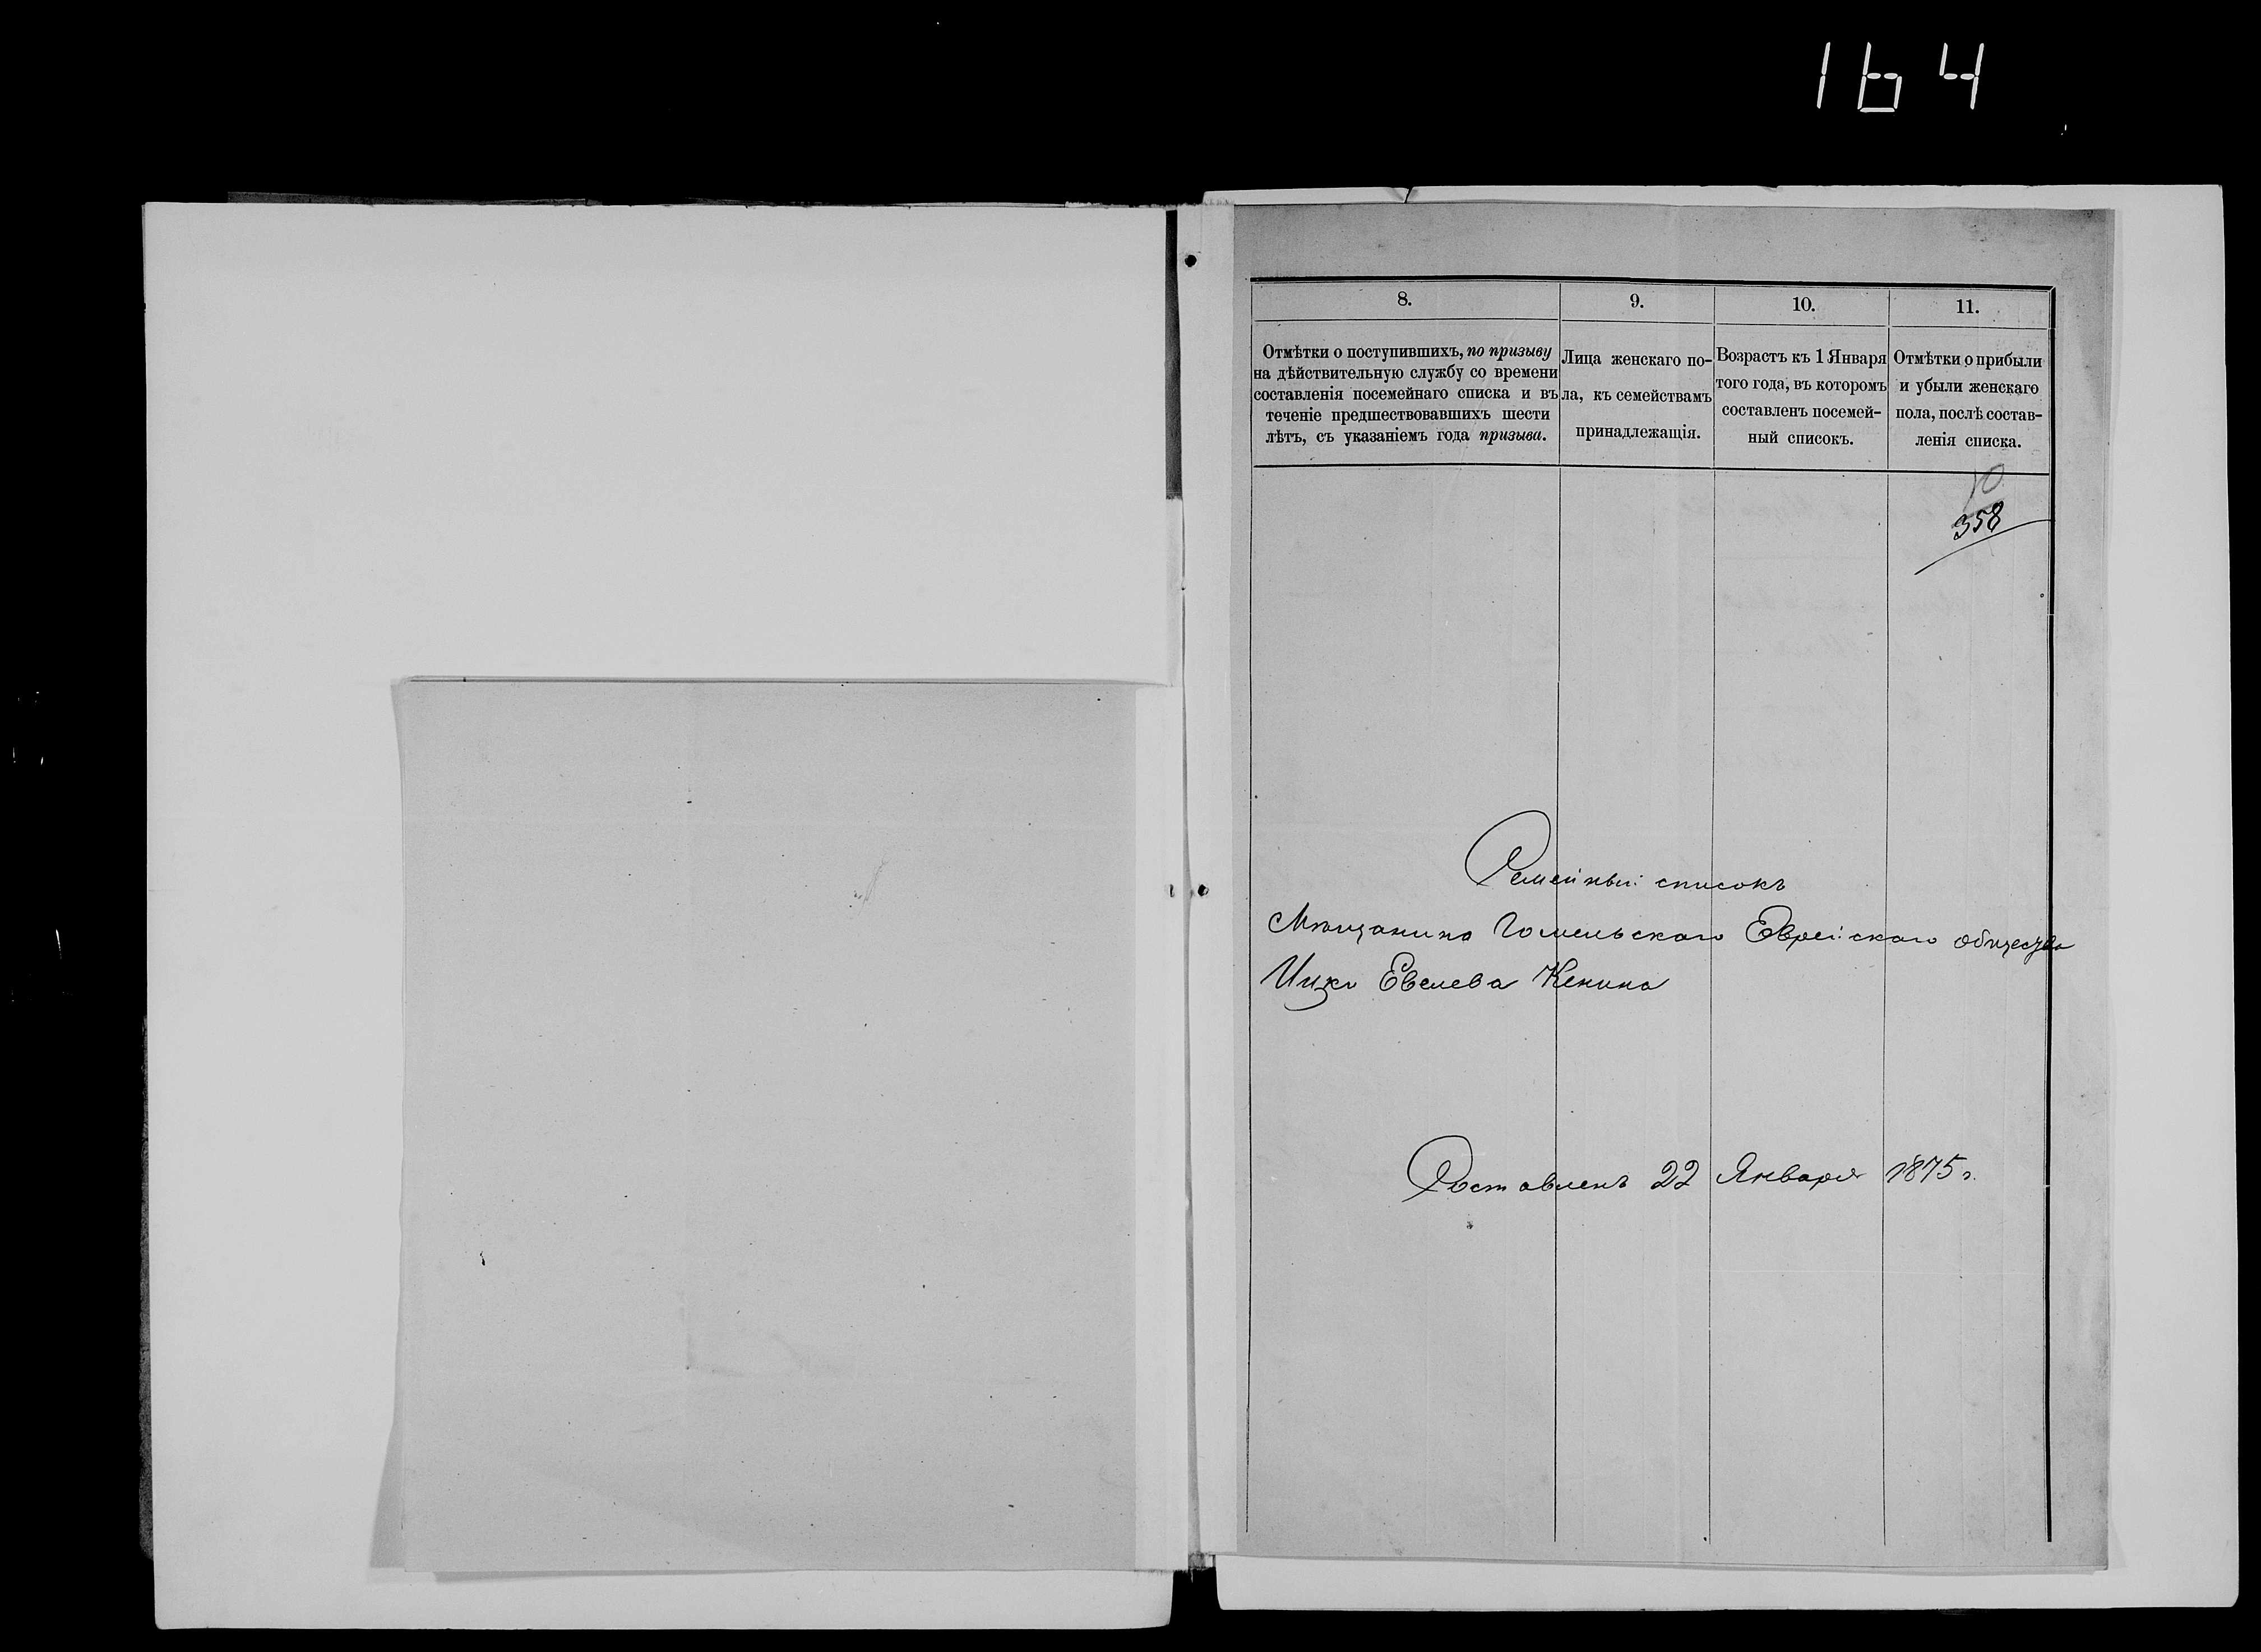 164
8.
9.
10.
11.
Отмѣтки о поступившихъ, по призыву
на дѣйствительную службу со времени
составленія посемейнаго списка и въ
теченіе предшествовавшихъ шести
лѣтъ, съ указаніемъ года призыва.
Лица женскаго по-
ла, къ семействамъ
принадлежащія.
Возрастъ къ 1 Января
того года, въ которомъ
составленъ посемей-
ный списокъ.
Отмѣтки о прибыли
и убыли женскаго
пола, послѣ состав-
ленія списка.
10
358
Семейный списокъ
Мѣщанина Гомельскаго Еврейскаго общества
Ицки Евелева Кенина
Составленъ 22 Января 1875 г.